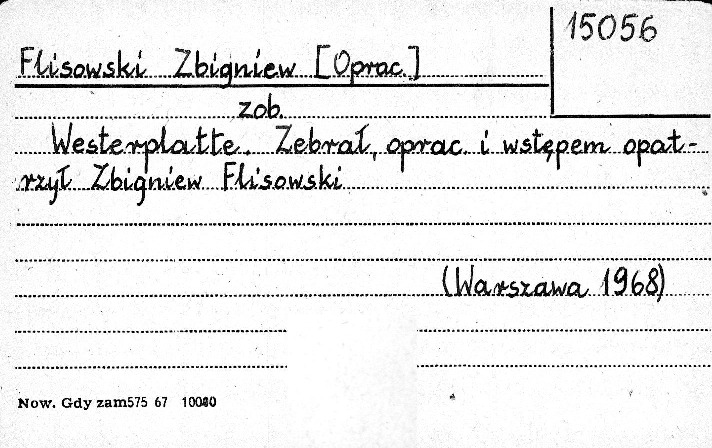 15056
Flisowski Zbigniew [Oprac.]
zob.
Westerplatte. Zebrał, oprac. i wstępem opat-
rzył Zbigniew Flisowski
(Warszawa 1968)
Now. Gdy zam575 67